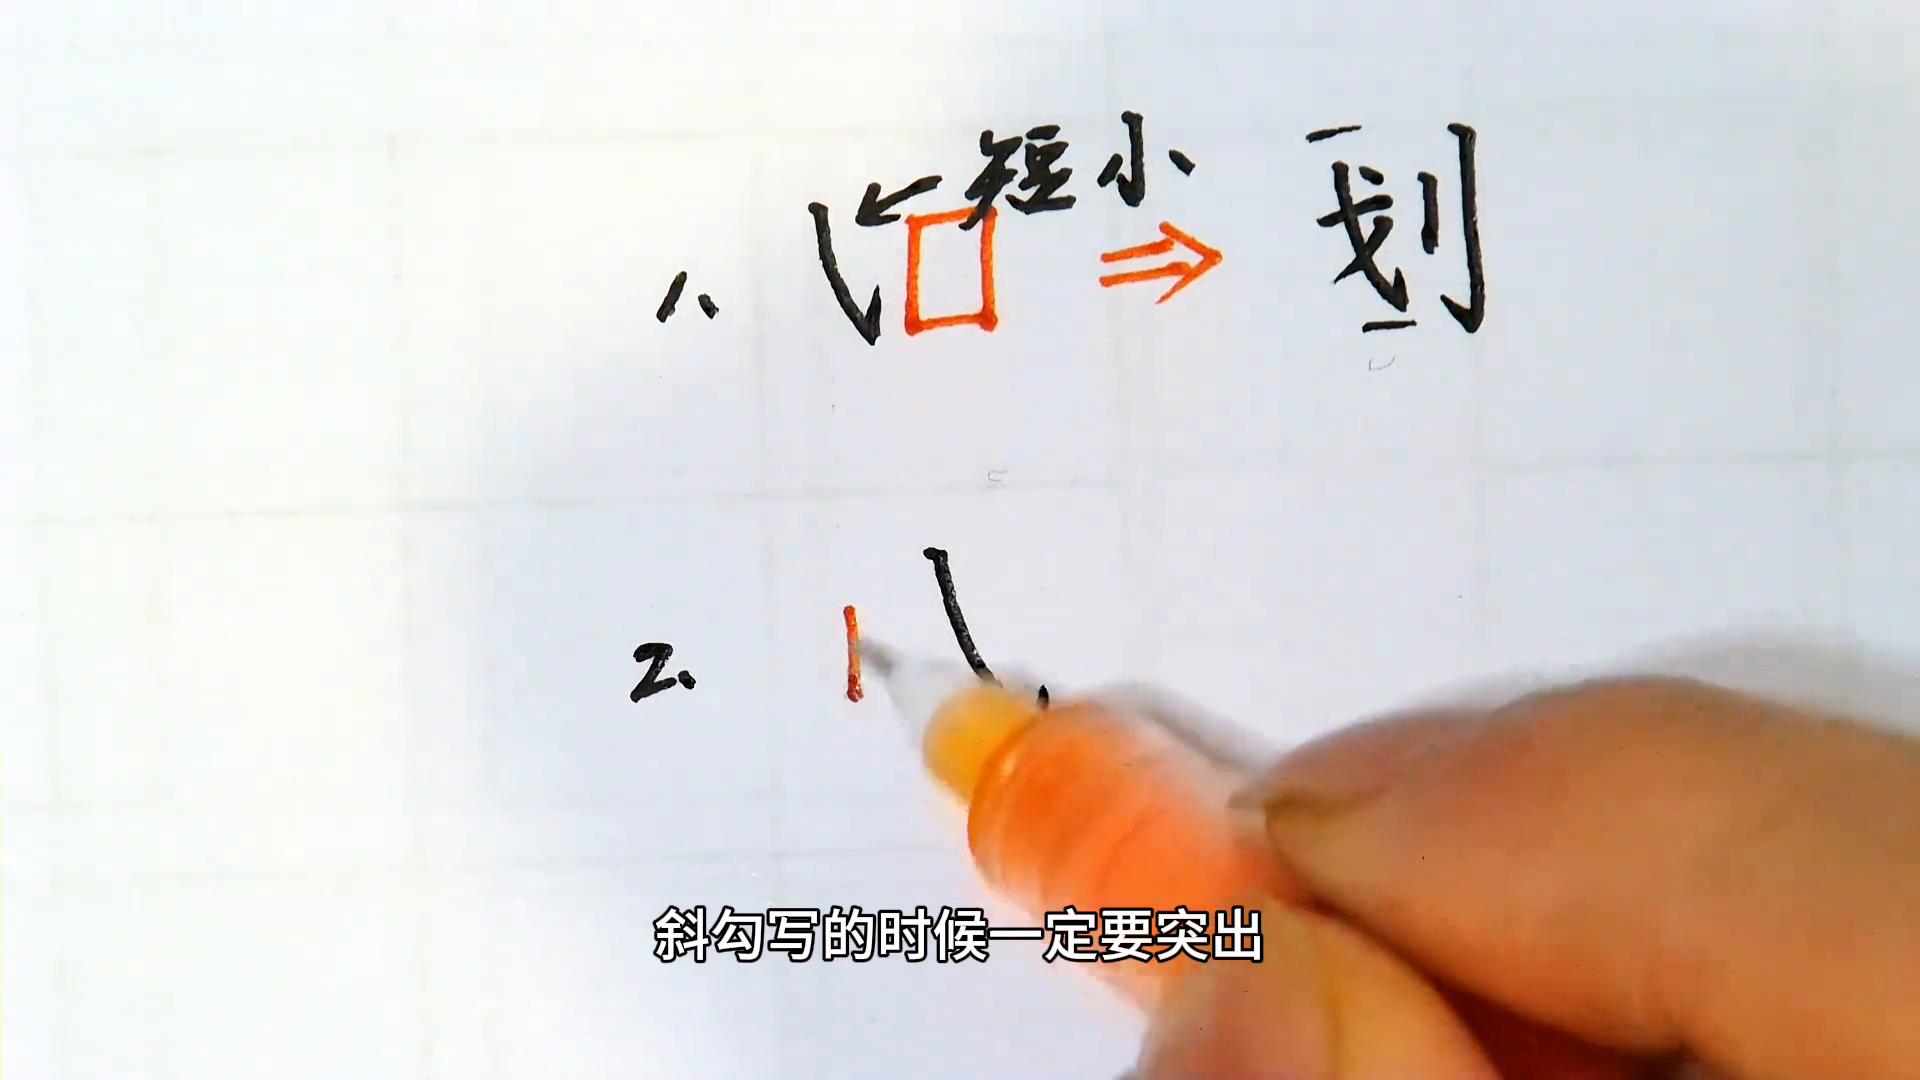 1、 短小 划
2、
斜勾写的时候一定要突出